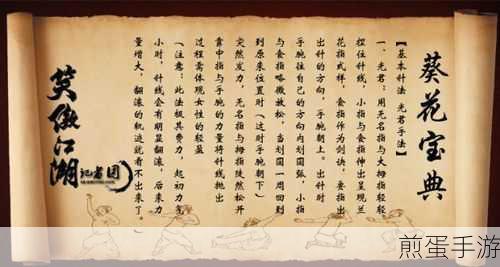 葵花宝典
【基本针法 光君手法】
一、光君：用无名指与大拇指轻轻
捏住针线，小指与食指伸出呈现兰
花指式样，食指作为剑诀，要指出
出针的方向，手腕朝上。出针时
手腕往自己的方向内划圆弧，小指
与食指略微放松，当划圆一周回到
到原来位置时（这时手腕朝下）
突然发力，无名指与拇指陡然松开
靠中指与手腕的力量将针线抛出
过程需体现女性的轻盈
（注意：此法极其费力，起初力气
小时，针线会有明显翻滚，后来力
量增大，翻滚的轨迹就看不出来了。）
笑傲江湖
记者团
煎蛋手游